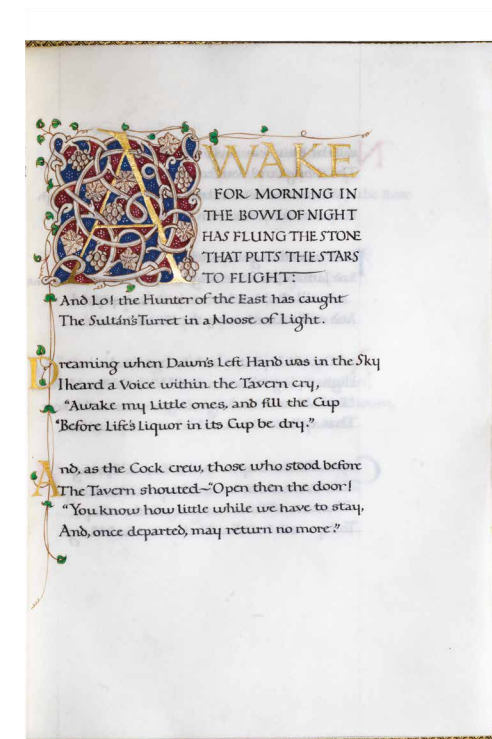 AWAKE
FOR MORNING IN
THE BOWL OF NIGHT
HAS FLUNG THE STONE
THAT PUTS THE STARS
TO FLIGHT:
And Lo! the Hunter of the East has caught
The Sultán's Turret in a Noose of Light.
Dreaming when Dawn's Left Hand was in the Sky
I heard a Voice within the Tavern cry,
"Awake my Little ones, and fill the Cup
"Before Life's Liquor in its Cup be dry."
And, as the Cock crew, those who stood before
The Tavern shouted~"Open then the door!
"You know how little while we have to stay,
And, once departed, may return no more."